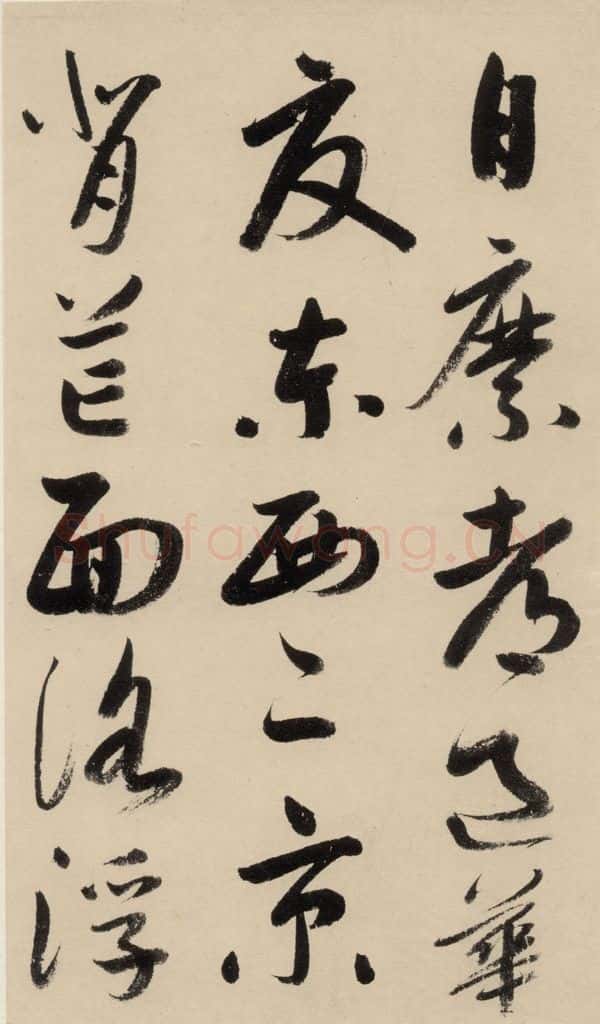 自縻都邑華
夏東西二京
背芒面洛浮
Shufawang.CN